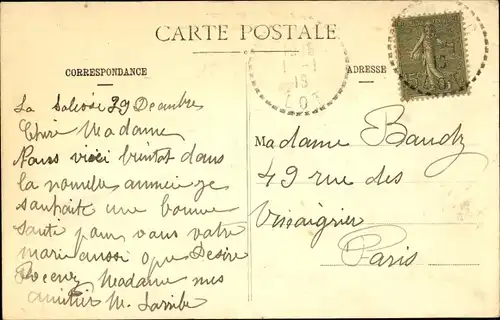 CARTE POSTALE
CORRESPONDANCE
ADRESSE
La 29 Decembre
Chere Madame
Nous voici bientot dans
la nouvelle annee je
souhaite une bonne
sante pour vous votre
mari aussi que Desire
Recevez Madame mes
amities M.
Madame
49 rue des
Vinaigrier
Paris
LOT